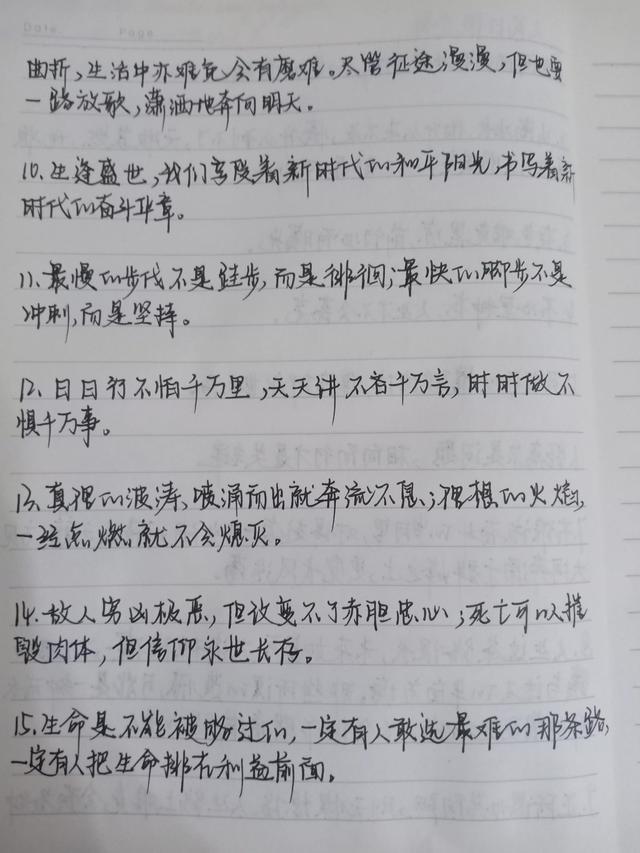 Date Page
曲折,生活中亦难免会有磨难。尽管征途漫漫,但也要
一路放歌,潇洒地奔向明天。
10.生逢盛世,我们享受着新时代的和平阳光,书写着新
时代的奋斗华章。
11.最慢的步伐不是跬步,而是徘徊;最快的脚步不是
冲刺,而是坚持。
12.日日行不怕千万里,天天讲不吝千万言,时时做不
惧千万事。
13.真理的波涛,喷涌而出就奔流不息;理想的火焰,
一经点燃就不会熄灭。
14.敌人穷凶极恶,但改变不了赤胆忠心;死亡可以摧
毁肉体,但信仰永世长存。
15.生命是不能被够过的,一定有人敢选最难的那条路,
一定有人把生命排在利益前面。